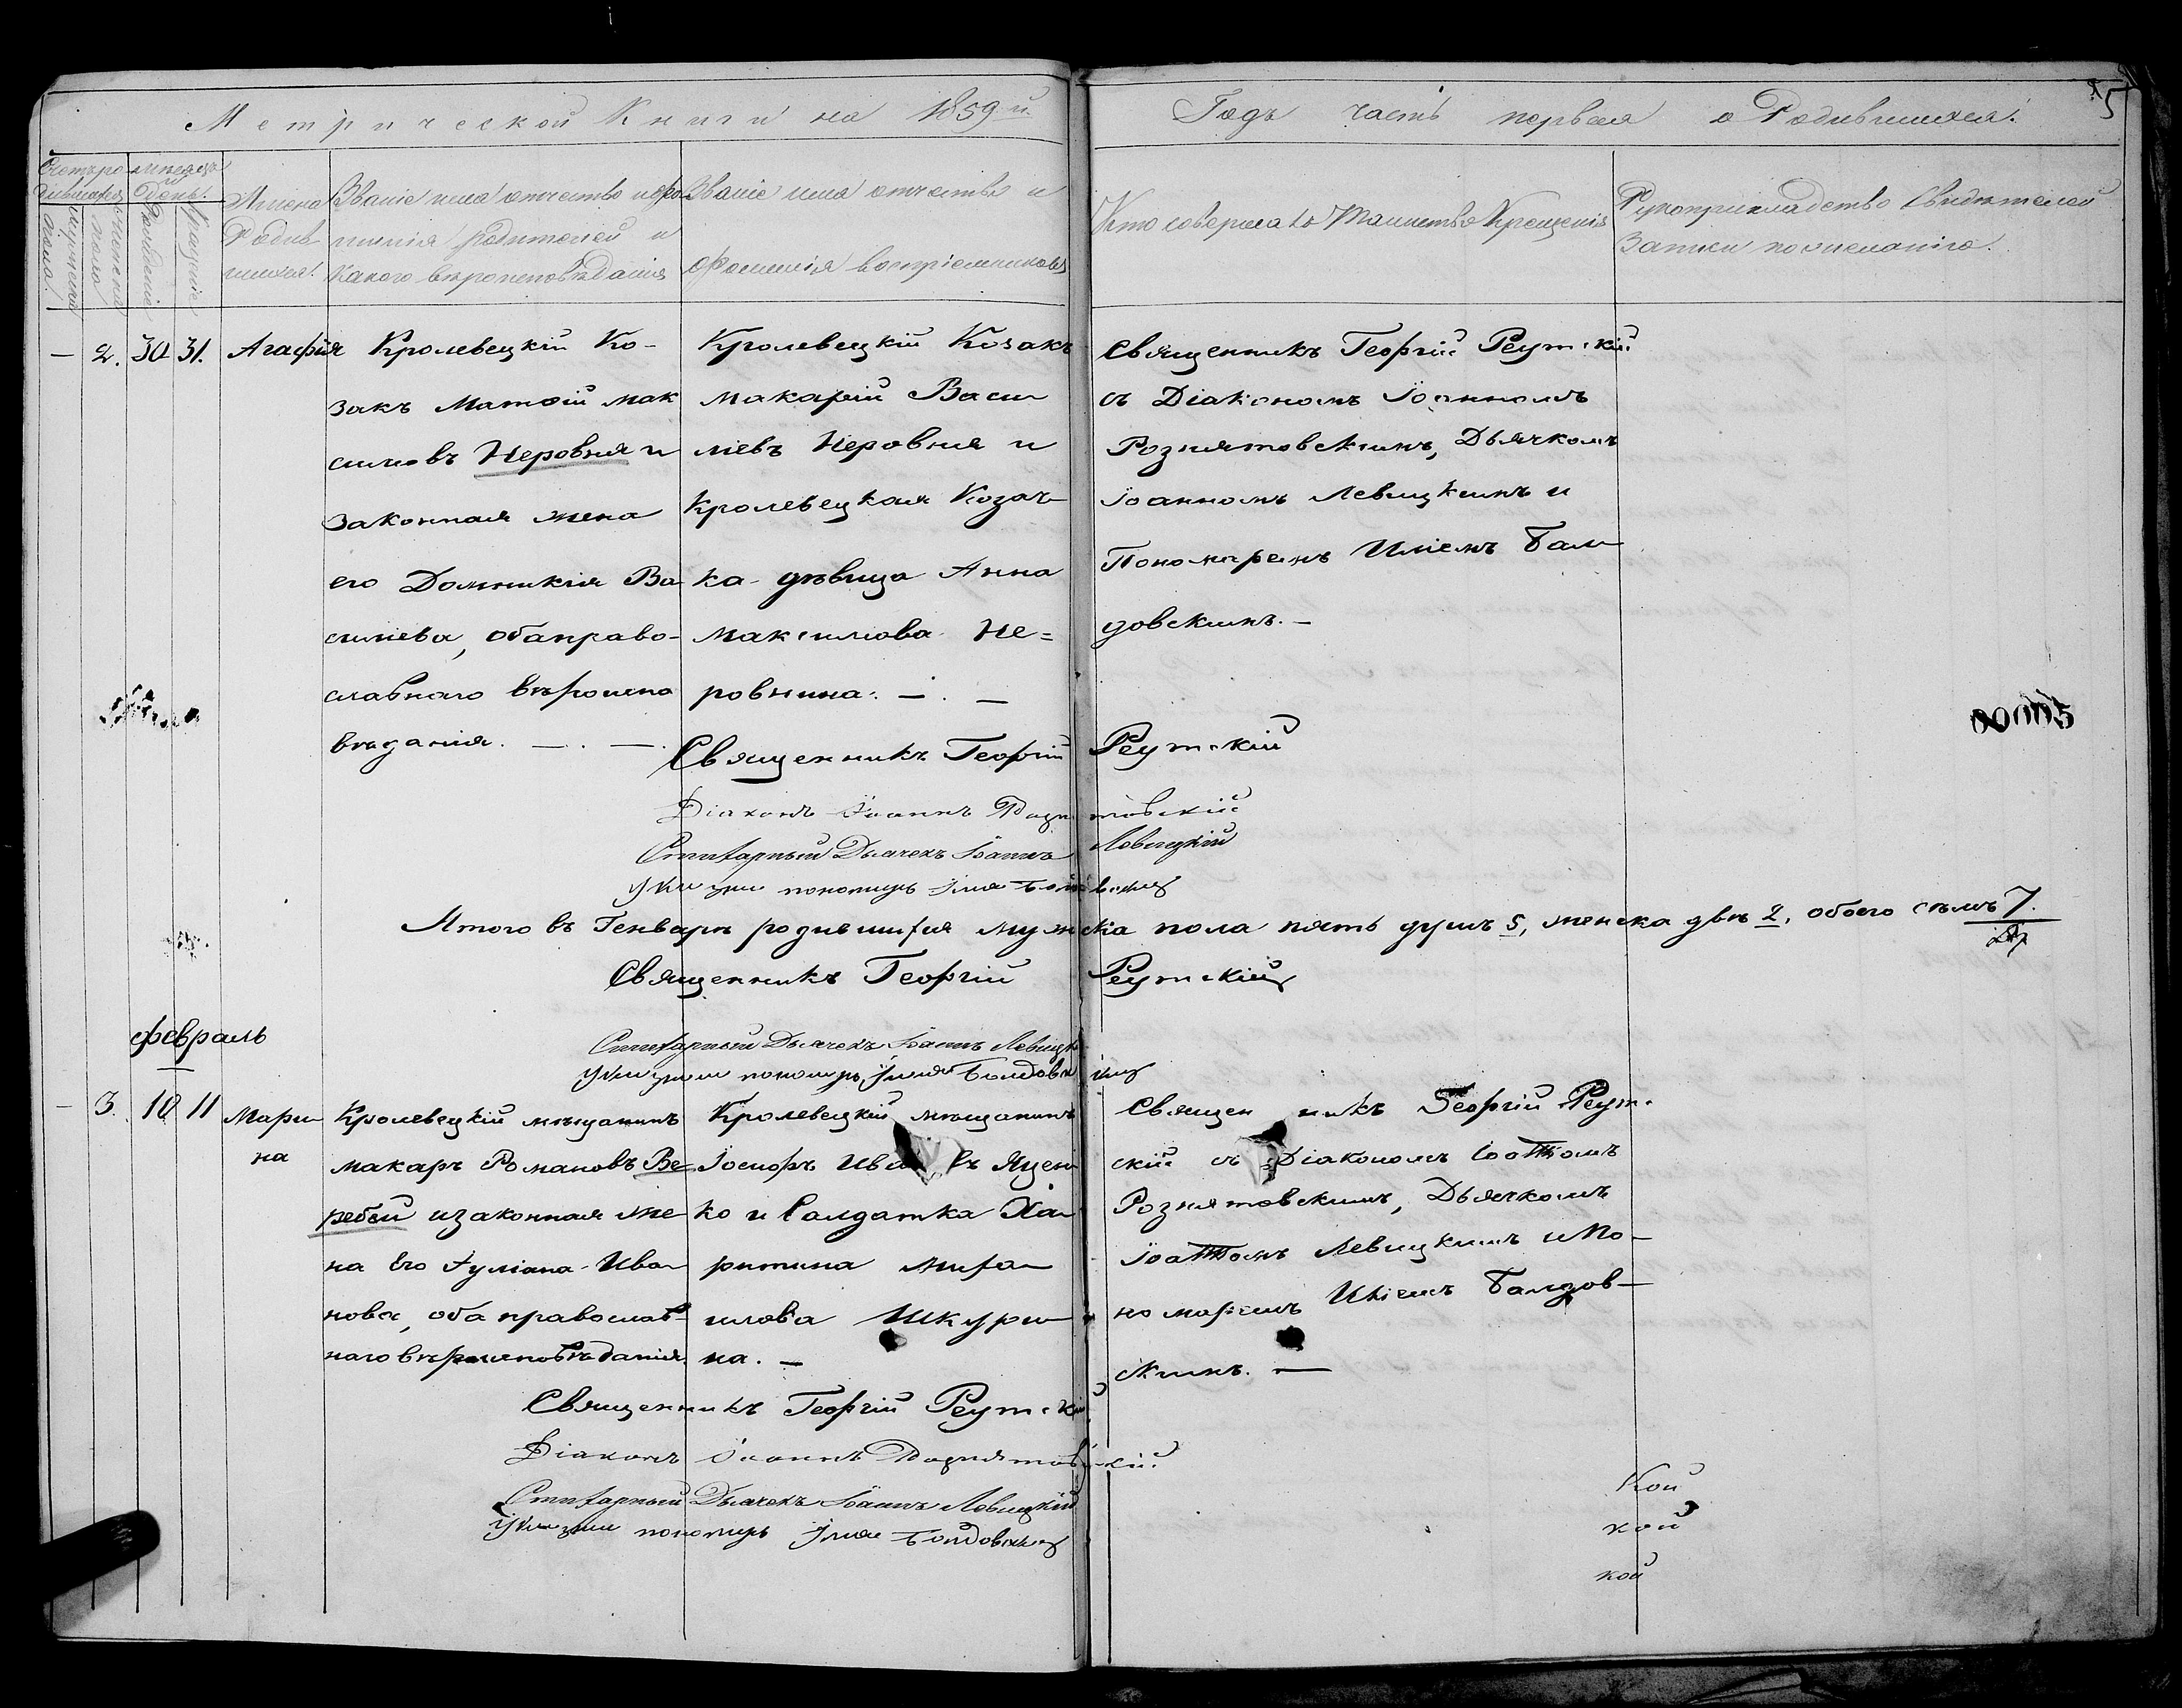 Метрической Книги на 1859й.
Годъ часть первая о Родившихся.
5
Счетъ ро-
дившихся
мужеска
пола.
женска
пола
мѣсяцъ
и
День.
Рожденіе
Крещеніе
Имена
Родив
шихся.
Званіе имя отчество и фа-
милія родителей и
какого вѣроисповѣданія
Званіе имя отчество и
фамилія воспріемниковъ
Кто совершалъ Таинство Крещенія
Рукоприкладство Свидѣтелей
записи по желанію.
— 2. 30 31. Агафія
Кролевецкій Ко-
закъ Матѳій Мак
симовъ Неровня и
законная жена
его Домникія Ва
силіева, оба право-
славнаго вѣроиспо
вѣданія. — . — .
Кролевецкій Козакъ
Макарій Васи
ліевъ Неровня и
Кролевецкая Козач
ка дѣвица Анна
Максимова Не=
ровнина. — . —
Священникъ Георгій Реутскій
съ Діакономъ Іоанномъ
Рознятовскимъ, Дьячкомъ
Іоанномъ Левицкимъ и
Пономаремъ Иліемъ Бал
довскимъ. —
Священникъ Георгій Реутскій
Діаконъ Іоаннъ Рознятовскій
Стихарный Дьячекъ Іоаннъ Левицкій
Указный пономарь Илія Балдовскій
Итого въ Генварѣ родившихся мужеска пола пять душъ 5, женска двѣ 2, обоего семь 7.
Священникъ Георгій Реутскій
Стихарный Дьячекъ Іоаннъ Левицкій
Указный пономарь Илія Балдовскій
Февраль
— 3. 10 11 Мари
на
Кролевецкій мѣщанинъ
Макаръ Романовъ Ве-
ребей и законная же
на Его Іуліана Ива
нова, оба православ-
наго вѣроисповѣданія
Кролевецкій мѣщанинъ
Іосифъ Ива въ Яцен
ко и Салдатка Ха
ритина Миха
илова Шкури
на. —
Священникъ Георгій Реут-
скій съ Діакономъ Іоанномъ
Рознятовскимъ, Дьячкомъ
Іоанномъ Левицкимъ и По-
номаремъ Иліемъ Балдов-
скимъ. —
Священникъ Георгій Реутскій
Діаконъ Іоаннъ Рознятовскій
Стихарный Дьячекъ Іоаннъ Левицкій
Указный пономарь Илія Балдовскій
кой
кой
кой